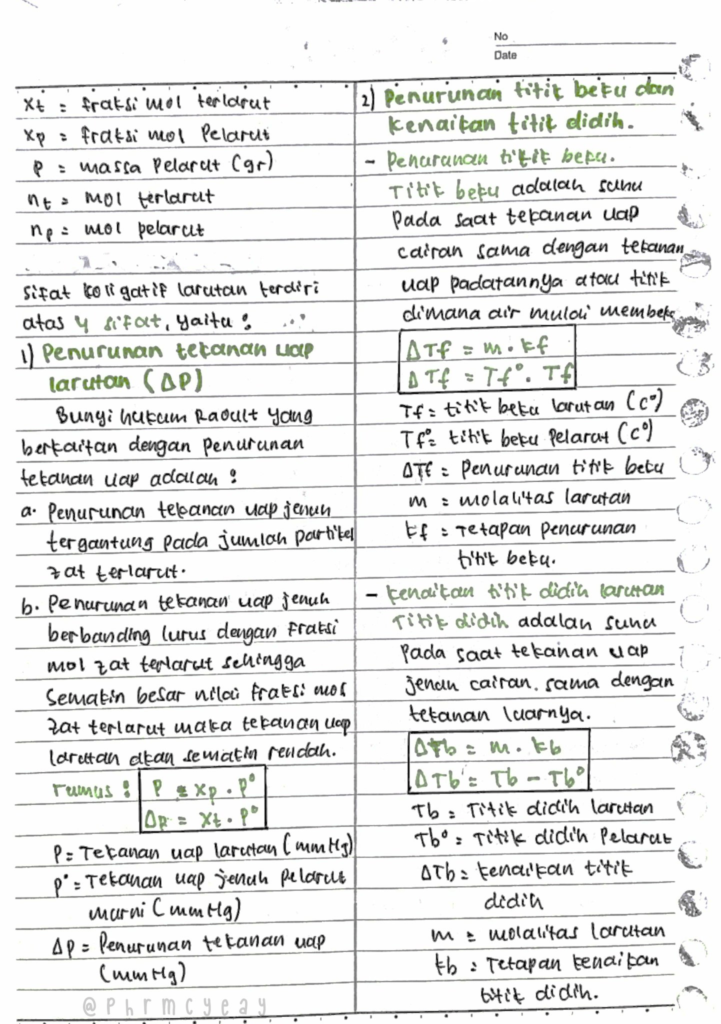 No
Date
Xt = fraksi mol terlarut
Xp = fraksi mol Pelarut
P = massa Pelarut (gr)
nt = mol terlarut
np = mol pelarut
Sifat koligatif larutan terdiri
atas 4 sifat, yaitu :
1) Penurunan tekanan uap
larutan (ΔP)
Bunyi hukum Raoult yang
berkaitan dengan penurunan
tekanan uap adalah :
a. Penurunan tekanan uap jenuh
tergantung pada jumlah partikel
zat terlarut.
b. Penurunan tekanan uap jenuh
berbanding lurus dengan fraksi
mol zat terlarut sehingga
Semakin besar nilai fraksi mol
zat terlarut maka tekanan uap
larutan akan semakin rendah.
rumus : P = Xp . P°
Δp = Xt . P°
P = Tekanan uap larutan (mmHg)
P° = Tekanan uap jenuh pelarut
murni (mmHg)
ΔP = Penurunan tekanan uap
(mmHg)
@phrmcyeay
2) Penurunan titik beku dan
kenaikan titik didih.
- Penurunan titik beku.
Titik beku adalah suhu
Pada saat tekanan uap
cairan sama dengan tekanan
uap padatannya atau titik
dimana air mulai membeku
ΔTf = m . kf
ΔTf = Tf° . Tf
Tf = titik beku larutan (C°)
Tf° = titik beku Pelarut (C°)
ΔTf = Penurunan titik beku
m = molalitas larutan
kf = Tetapan penurunan
titik beku.
- kenaikan titik didih larutan
Titik didih adalah suhu
Pada saat tekanan uap
jenuh cairan sama dengan
tekanan luarnya.
ΔTb = m . kb
ΔTb = Tb - Tb°
Tb = Titik didih larutan
Tb° = Titik didih Pelarut
ΔTb = kenaikan titik
didih
m = molalitas larutan
kb = Tetapan kenaikan
titik didih.